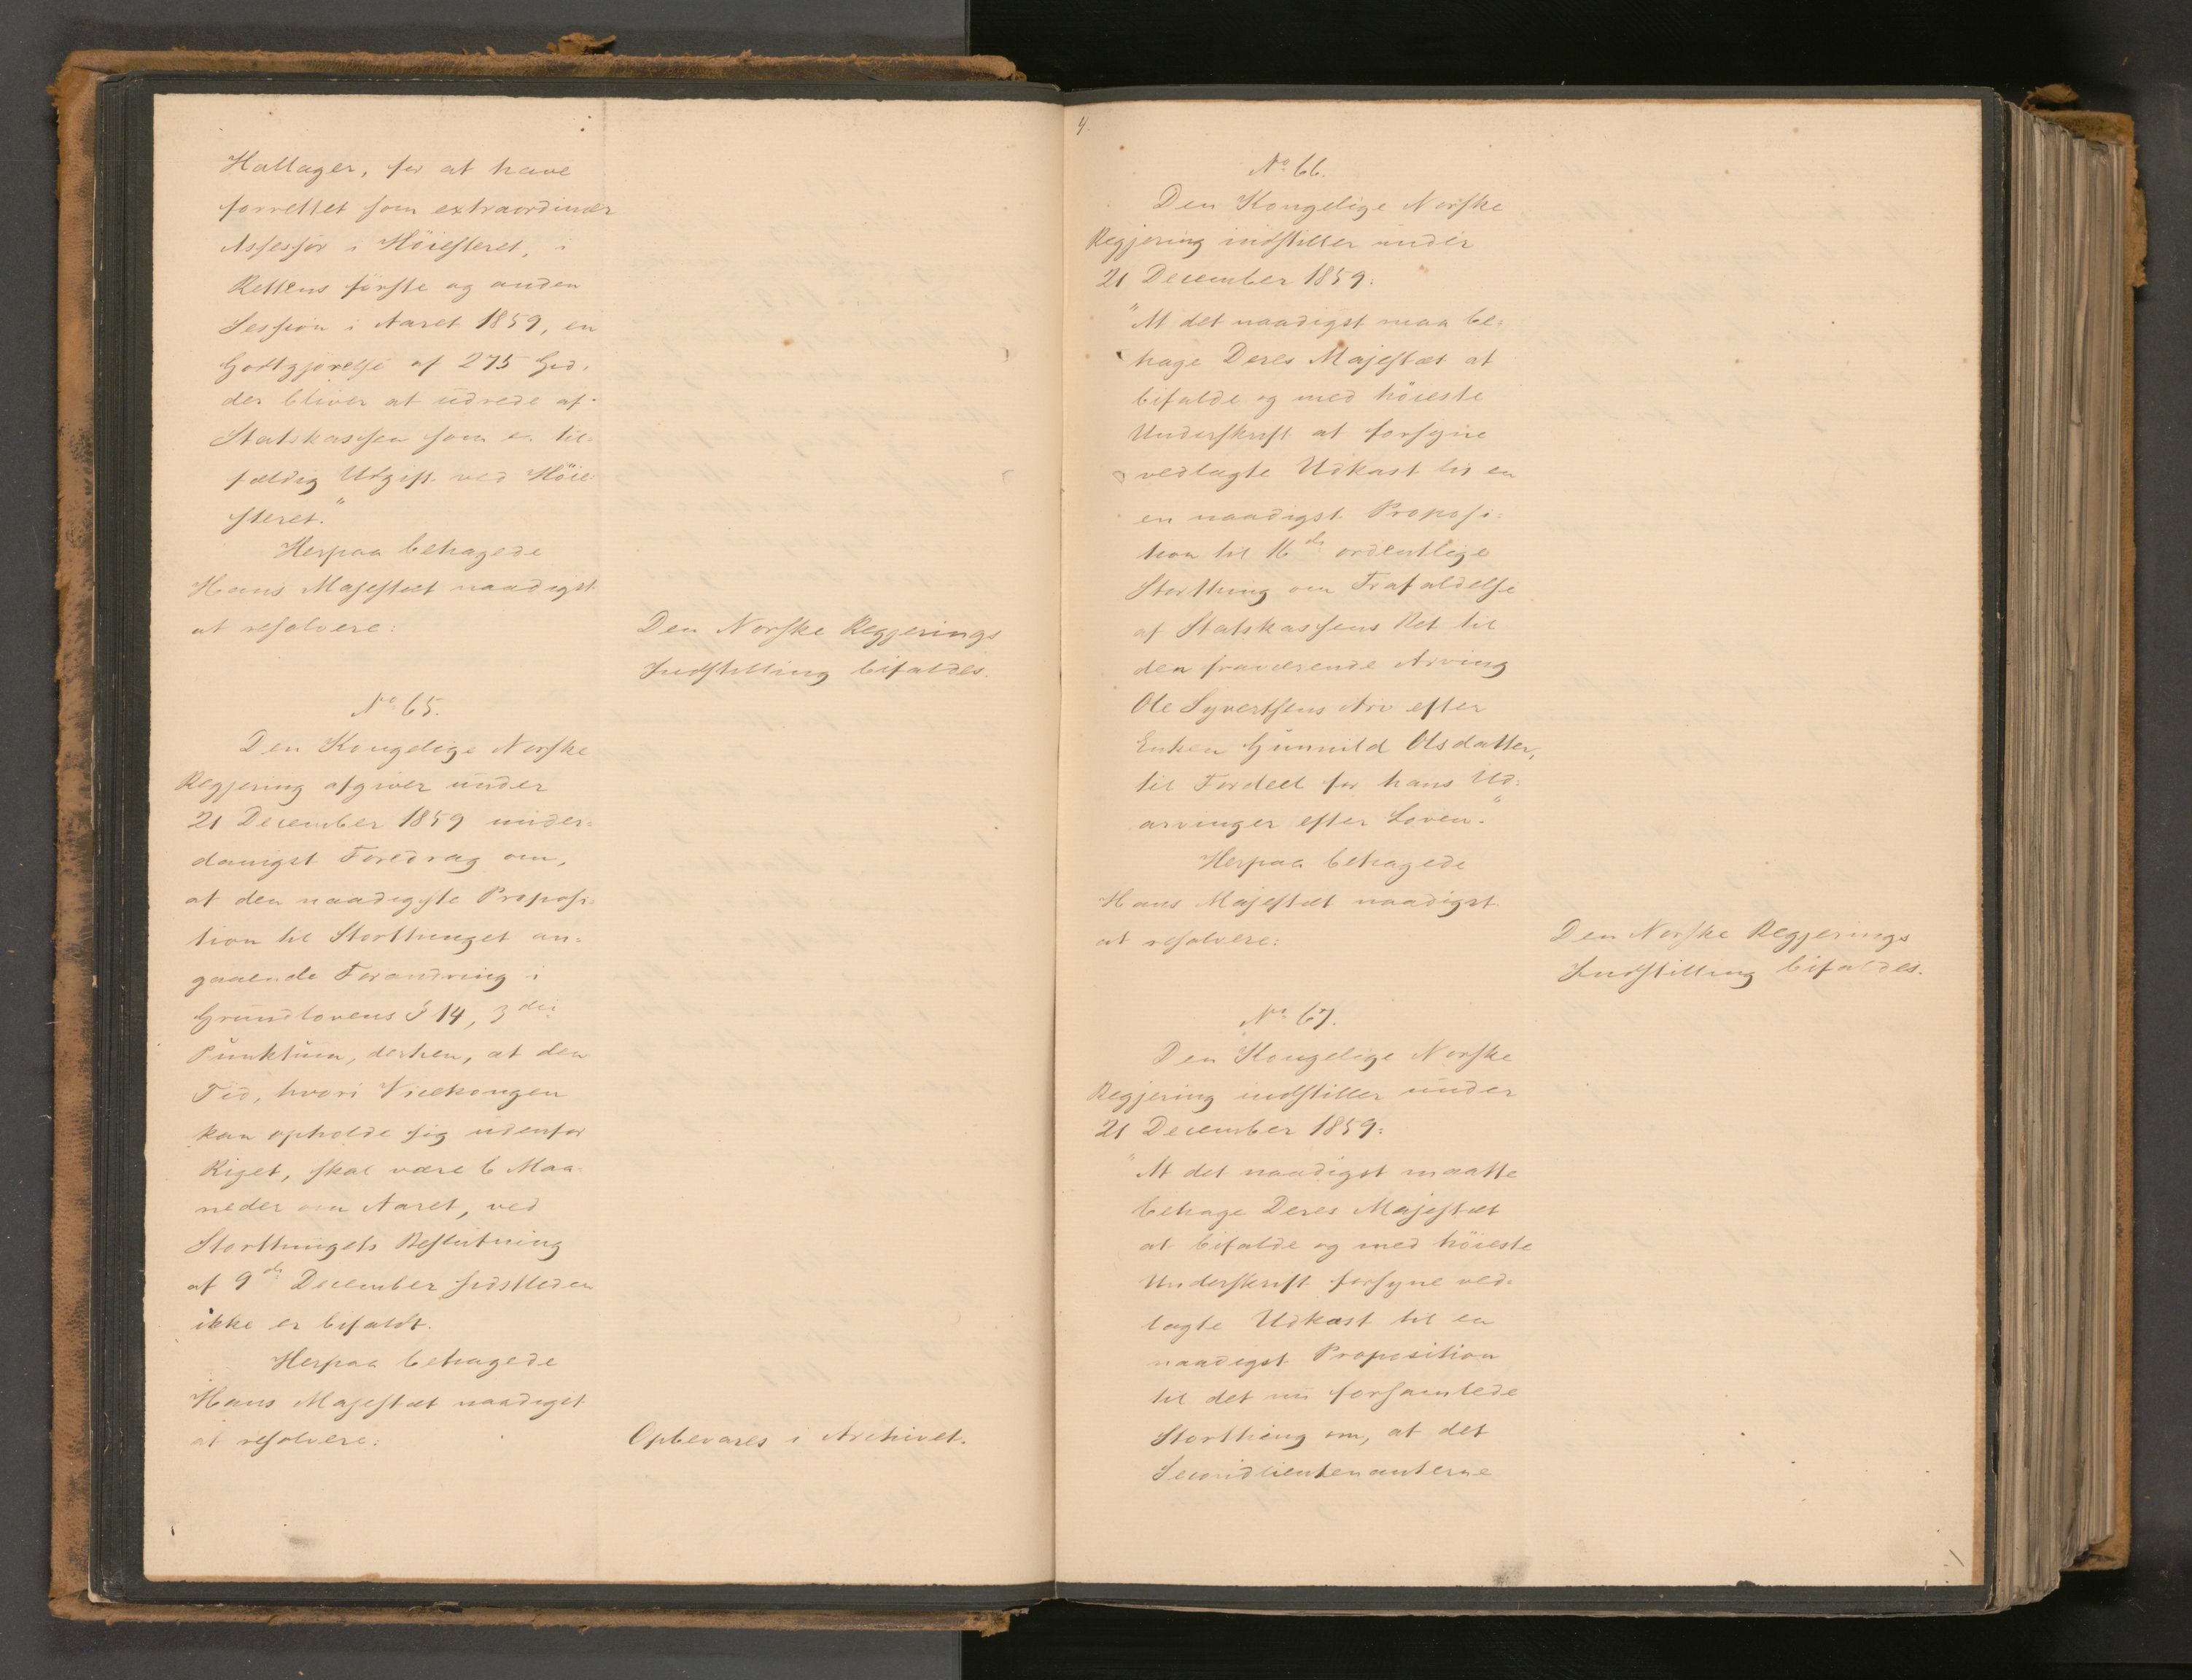 Hallager, for at have
forrettet som extraordinær
Assessor i Höiesteret, i
Rettens förste og anden
Session i Aaret 1859, en
Godtgjörelse af 275 Spd.
der bliver at udrede af
Statskassen som en til-
fældig Udgift ved Höie-
steret."
Herpaa behagede
Hans Majestæt naadigst
at resolvere:
Den Norske Regjerings
Indstilling bifaldes.
No 65.
Den Kongelige Norske
Regjering afgiver under
21 December 1859 under-
danigst Foredrag om,
at den naadigste Proposi-
tion til Storthinget an-
gaaende Forandring i
Grundlovens § 14, 3die
Punktum, derhen, at den
Tid, hvori Vicekongen
kan opholde sig udenfor
Riget, skal være 6 Maa-
neder om Aaret, ved
Storthingets Beslutning
af 9de December sidstleden
ikke er bifaldt.
Herpaa behagede
Hans Majestæt naadigst
at resolvere:
Opbevares i Archivet.
4.
No 66.
Den Kongelige Norske
Regjering indstiller under
21 December 1859:
"At det naadigst maa be-
hage Deres Majestæt at
bifalde og med höieste
Underskrift at forsyne
vedlagte Udkast til en
en naadigst Proposi-
tion til 16de ordentlige
Storthing om Frafaldelse
af Statskassens Ret til
den fraværende Arving
Ole Syvertsens Arv efter
Enken Gunnild Olsdatter,
til Fordeel for hans Ud-
arvinger efter Loven."
Herpaa behagede
Hans Majestæt naadigst
at resolvere:
Den Norske Regjerings
Indstilling bifaldes.
No 67.
Den Kongelige Norske
Regjering indstiller under
21 December 1859:
"At det naadigst maatte
behage Deres Majestæt
at bifalde og med höieste
Underskrift forsyne ved-
lagte Udkast til en
naadigst Proposition
til det nu forsamlede
Storthing om, at det
Secondlieutenanterne